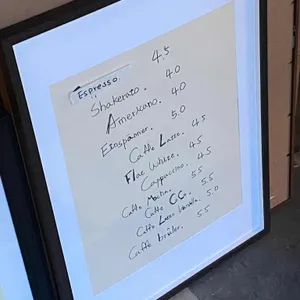 Espresso. 4.5
Shakerato. 4.0
Americano. 4.0
Einspänner. 5.0
Caffe Lasse. 4.5
Flat White. 4.5
Cappuccino. 4.5
Caffe Mocha. 5.5
Caffe C.C. 5.5
Caffe Lasse Vanilla. 5.0
Caffe brûler. 5.5